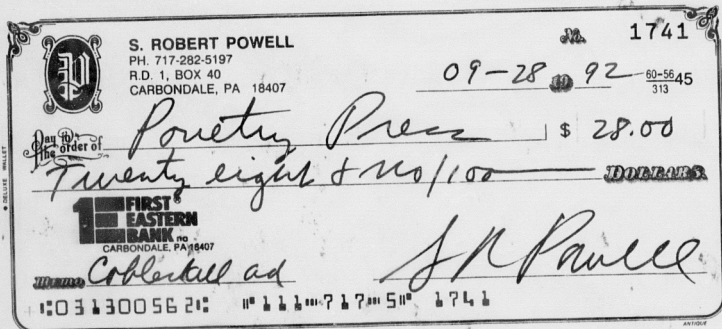 S. ROBERT POWELL
PH. 717-282-5197
R.D. 1, BOX 40
CARBONDALE, PA 18407
No. 1741
09-28 19 92 60-56 45
313
Pay to the order of Press $ 28.00
Twenty eight & no/100 DOLLARS
1E FIRST EASTERN BANK na
CARBONDALE, PA 18407
Memo Cobleskill ad S R Powell
⑆031300562⑆ ⑈111⑉717⑉5⑈ 1741
DELUXE WALLET
ANTIQUE